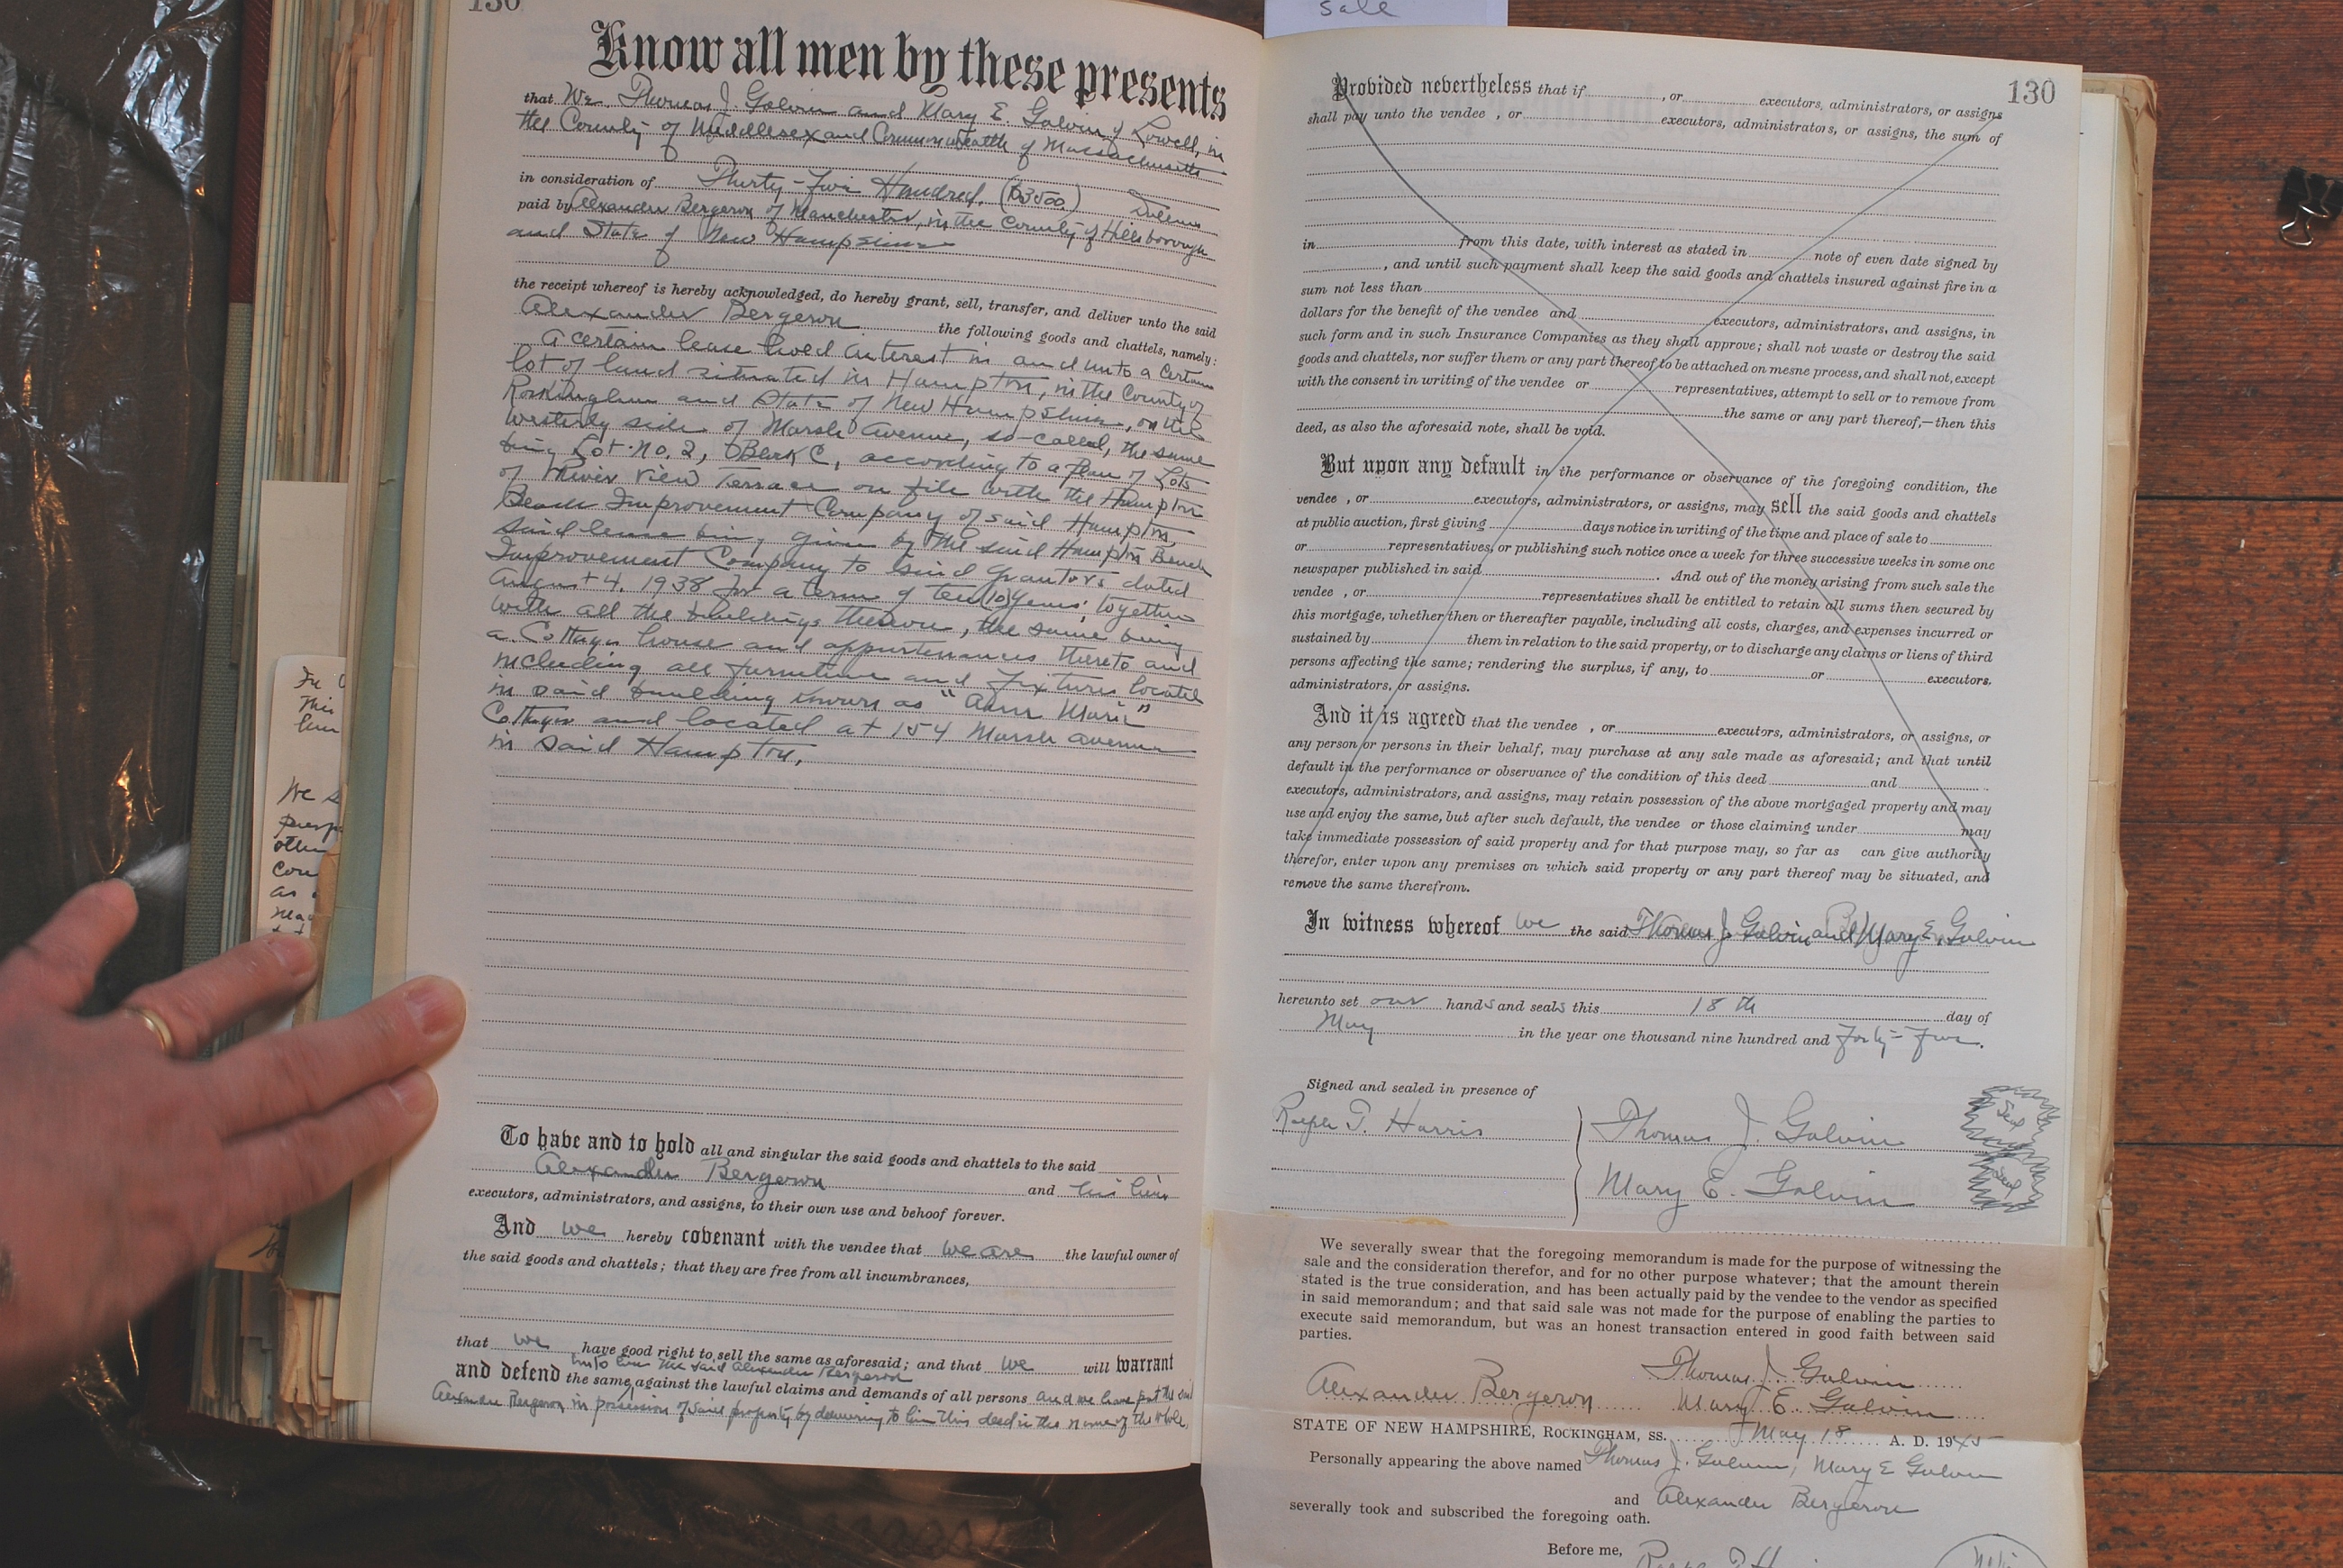 130
Know all men by these presents
that We Thomas J. Galvin and Mary E. Galvin of Lowell, in
the County of Middlesex and Commonwealth of Massachusetts
in consideration of Thirty-five Hundred. ($3500) Dollars
paid by Alexander Bergeron of Manchester, in the County of Hillsborough
and State of New Hampshire
the receipt whereof is hereby acknowledged, do hereby grant, sell, transfer, and deliver unto the said
Alexander Bergeron the following goods and chattels, namely:
A certain lease hold interest in and unto a certain
lot of land situated in Hampton, in the County of
Rockingham and State of New Hampshire, on the
westerly side of Marsh Avenue, so-called, the same
being Lot No. 2, Block C, according to a plan of Lots
of River View Terrace on file with the Hampton
Beach Improvement Company of said Hampton,
said lease being given by the said Hampton Beach
Improvement Company to said Grantors dated
August 4, 1938 for a term of ten (10) years; together
with all the buildings thereon, the same being
a Cottage house and appurtenances thereto and
including all furniture and fixtures located
in said building known as "Ann Marie"
Cottage and located at 154 Marsh Avenue
in said Hampton.
To have and to hold all and singular the said goods and chattels to the said
Alexander Bergeron and his heirs
executors, administrators, and assigns, to their own use and behoof forever.
And we hereby covenant with the vendee that we are the lawful owner of
the said goods and chattels; that they are free from all incumbrances,
that we have good right to sell the same as aforesaid; and that we will warrant
unto him the said Alexander Bergeron
and defend the same against the lawful claims and demands of all persons and we have put the said
Alexander Bergeron in possession of said property by delivering to him this deed in the name of the whole.
sale
130
Provided nevertheless that if , or executors, administrators, or assigns
shall pay unto the vendee , or executors, administrators, or assigns, the sum of
in from this date, with interest as stated in note of even date signed by
, and until such payment shall keep the said goods and chattels insured against fire in a
sum not less than
dollars for the benefit of the vendee and executors, administrators, and assigns, in
such form and in such Insurance Companies as they shall approve; shall not waste or destroy the said
goods and chattels, nor suffer them or any part thereof to be attached on mesne process, and shall not, except
with the consent in writing of the vendee or representatives, attempt to sell or to remove from
the same or any part thereof,—then this
deed, as also the aforesaid note, shall be void.
But upon any default in the performance or observance of the foregoing condition, the
vendee , or executors, administrators, or assigns, may sell the said goods and chattels
at public auction, first giving days notice in writing of the time and place of sale to
or representatives, or publishing such notice once a week for three successive weeks in some one
newspaper published in said . And out of the money arising from such sale the
vendee , or representatives shall be entitled to retain all sums then secured by
this mortgage, whether then or thereafter payable, including all costs, charges, and expenses incurred or
sustained by them in relation to the said property, or to discharge any claims or liens of third
persons affecting the same; rendering the surplus, if any, to or executors.
administrators, or assigns.
And it is agreed that the vendee , or executors, administrators, or assigns, or
any person or persons in their behalf, may purchase at any sale made as aforesaid; and that until
default in the performance or observance of the condition of this deed and
executors, administrators, and assigns, may retain possession of the above mortgaged property and may
use and enjoy the same, but after such default, the vendee or those claiming under may
take immediate possession of said property and for that purpose may, so far as can give authority
therefor, enter upon any premises on which said property or any part thereof may be situated, and
remove the same therefrom.
In witness whereof we the said Thomas J. Galvin and Mary E. Galvin
hereunto set our hands and seals this 18th day of
May in the year one thousand nine hundred and forty-five.
Signed and sealed in presence of
Harris
Thomas J. Galvin Seal
Mary E. Galvin Seal
We severally swear that the foregoing memorandum is made for the purpose of witnessing the
sale and the consideration therefor, and for no other purpose whatever; that the amount therein
stated is the true consideration, and has been actually paid by the vendee to the vendor as specified
in said memorandum; and that said sale was not made for the purpose of enabling the parties to
execute said memorandum, but was an honest transaction entered in good faith between said
parties.
Thomas J. Galvin
Alexander Bergeron Mary E. Galvin
STATE OF NEW HAMPSHIRE, ROCKINGHAM, SS. May 18 A. D. 1945
Personally appearing the above named Thomas J. Galvin, Mary E Galvin
and Alexander Bergeron
severally took and subscribed the foregoing oath.
Before me,